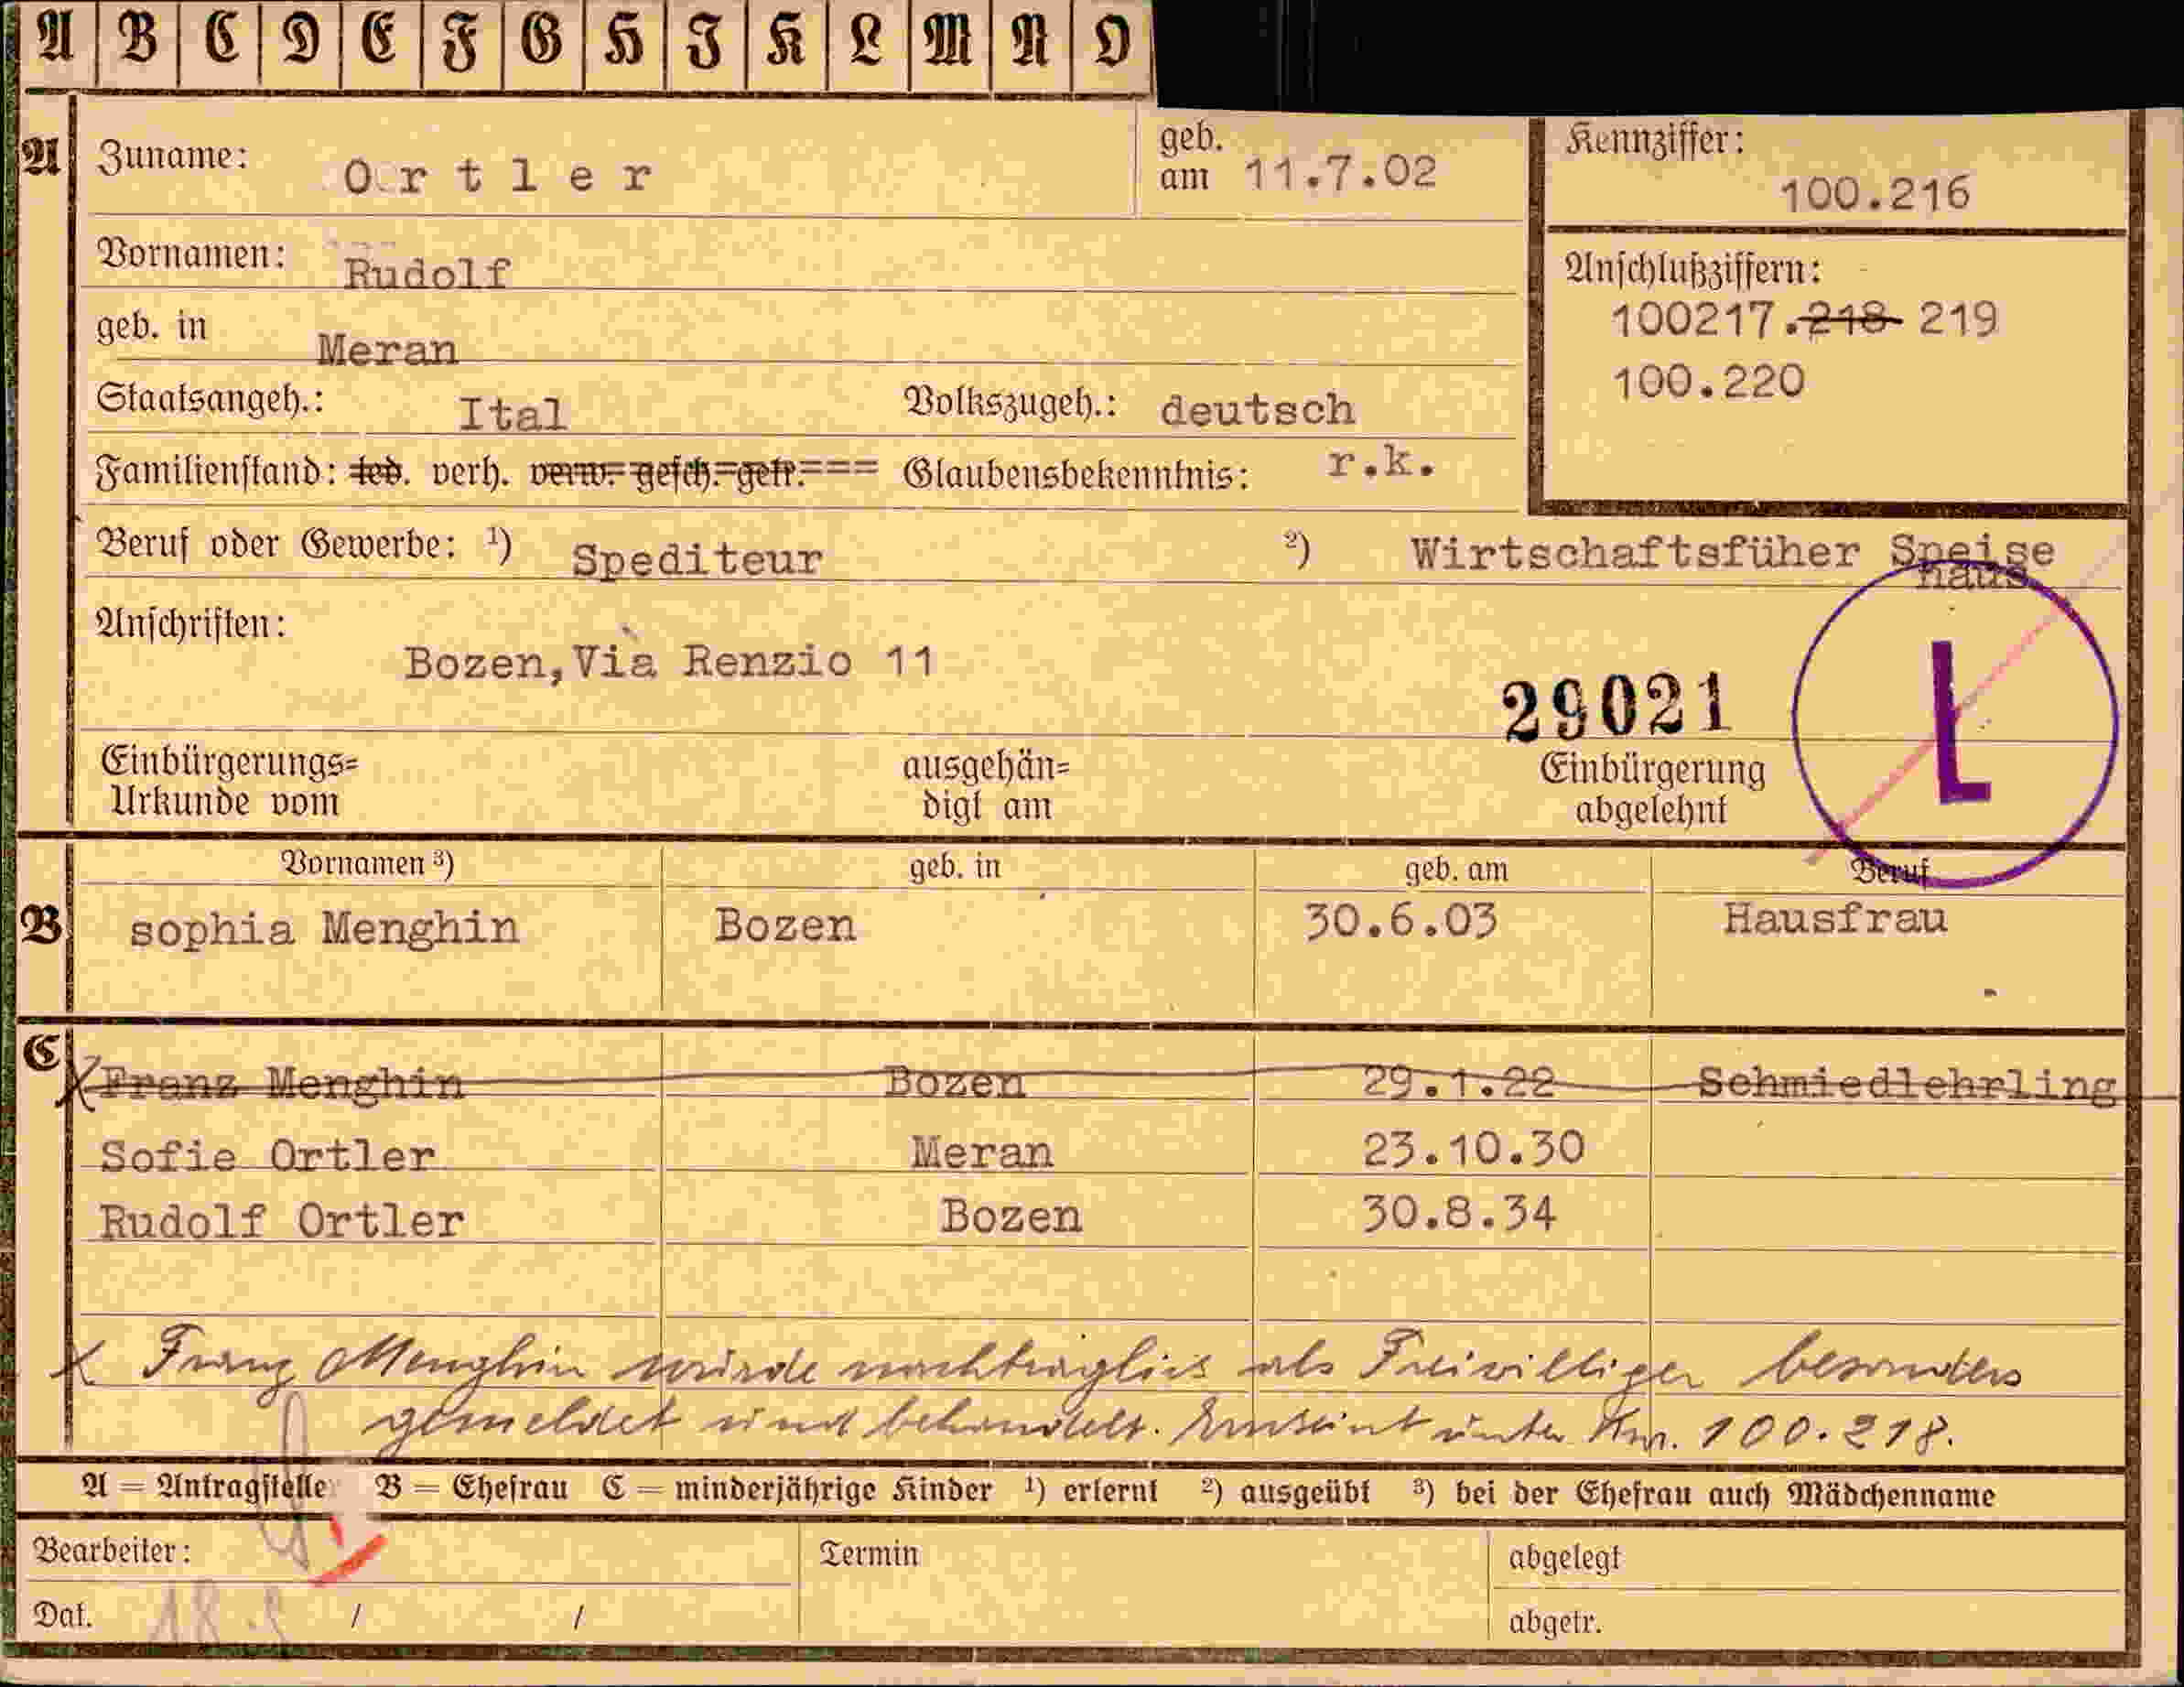 A B C D E F G H I K L M N O
A Zuname: Ortler geb. am 11.7.02
Kennziffer: 100.216
Vornamen: Rudolf
Anschlußziffern:
100217.218 219
100.220
geb. in Meran
Staatsangeh.: Ital Volkszugeh.: deutsch
Familienstand: led. verh. verw. gesch. getr.=== Glaubensbekenntnis: r.k.
Beruf oder Gewerbe: ¹) Spediteur ²) Wirtschaftsfüher Speise
haus
Anschriften:
Bozen,Via Renzio 11
29021 L
Einbürgerungs= Urkunde vom ausgehän= digt am Einbürgerung abgelehnt
Vornamen ³) geb. in geb. am Beruf
B sophia Menghin Bozen 30.6.03 Hausfrau
C Franz Menghin Bozen 29.1.22 Schmiedlehrling
Sofie Ortler Meran 23.10.30
Rudolf Ortler Bozen 30.8.34
x Franz Menghin wurde nachträglich als Freiwilliger besonders
gemeldet und behandelt. unter Knr. 100.218.
A = Antragstelle B = Ehefrau C = minderjährige Kinder ¹) erlernt ²) ausgeübt ³) bei der Ehefrau auch Mädchenname
Bearbeiter: Termin abgelegt
Dat. 18. / / abgetr.